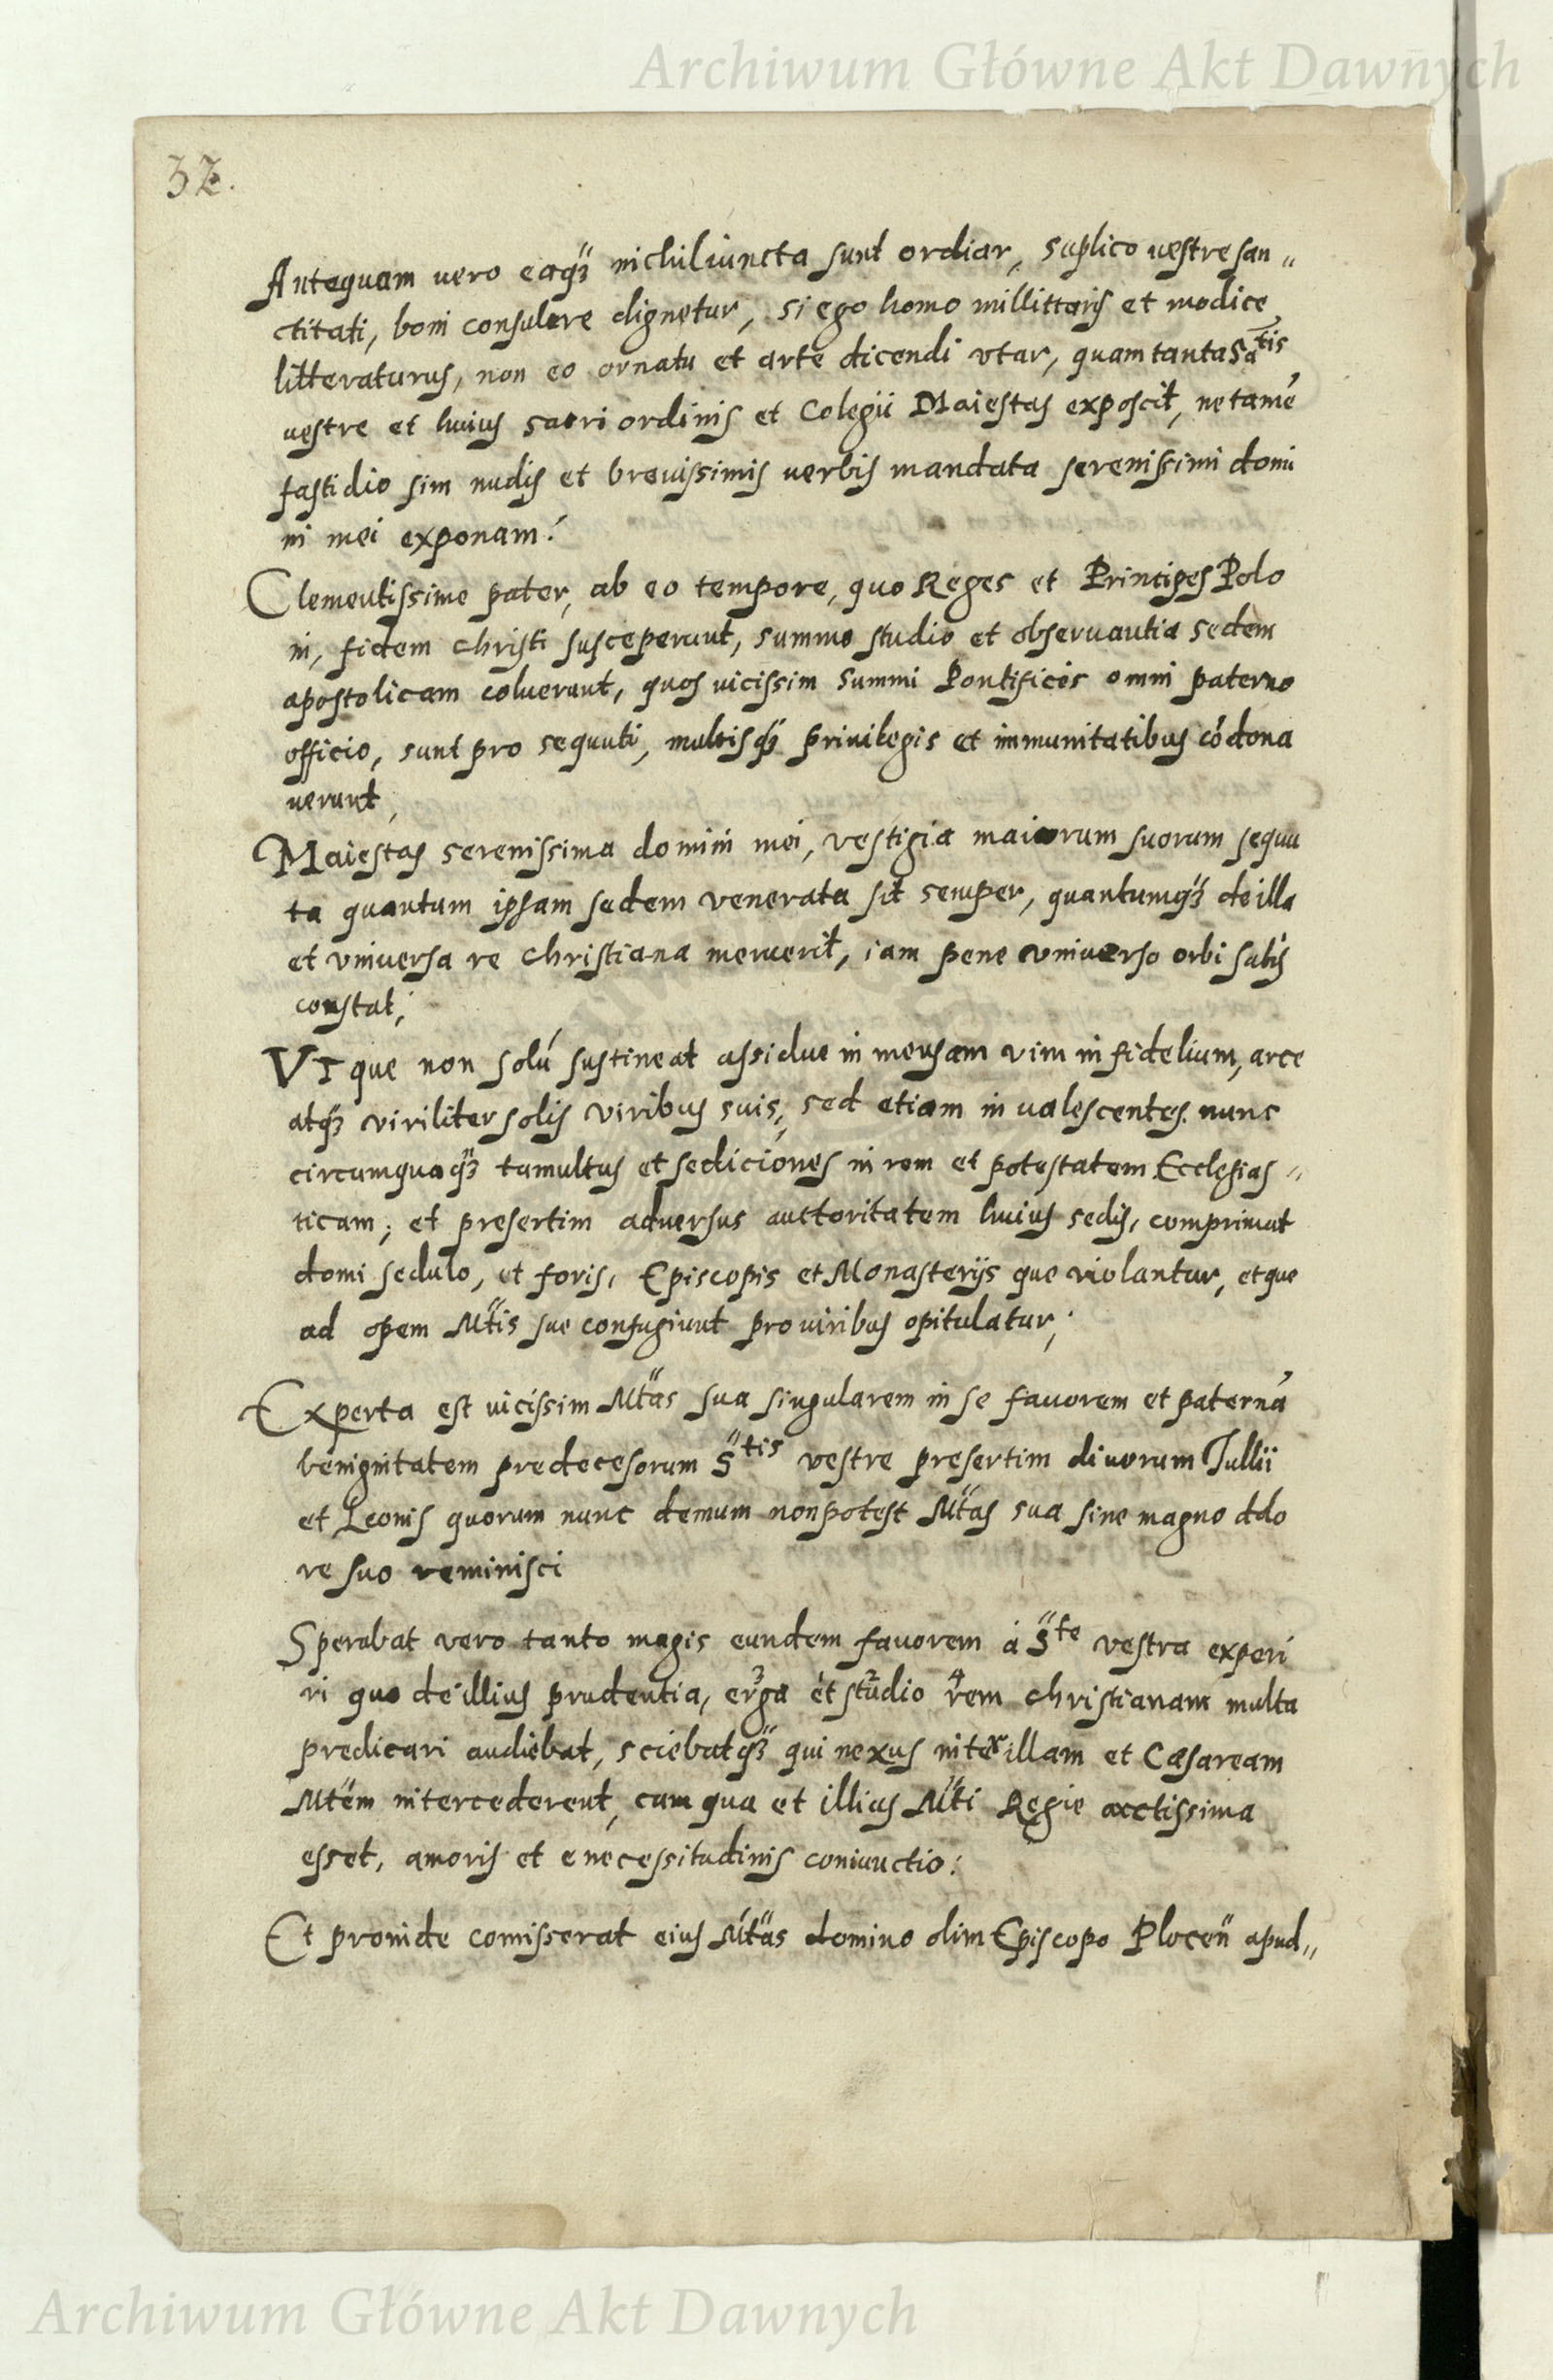 Archiwum Główne Akt Dawnych
32.
Antequam vero eaqꝫ michi iniuncta sunt ordiar, suplico vestre san„
ctitati, boni consulere dignetur, si ego homo millittaris et modice
litteraturus, non eo ornatu et arte dicendi vtar, quam tanta Sa^tis
vestre et huius sacri ordinis et Colegii Maiestas exposcit, ne tamē
fastidio sim nudis et brevissimis verbis mandata serenissimi domi
ni mei exponam:
Clementissime pater, ab eo tempore, quo Reges et Principes Polo
ni, fidem christi susceperunt, summo studio et observantia sedem
apostolicam coluerunt, quos vicissim Summi Pontifices omni paterno
officio, sunt pro sequuti, multisqꝫ privilegis et immunitatibus cōdona
verunt,
Maiestas serenissima domini mei, vestigia maiorum suorum sequu
ta quantum ipsam sedem venerata sit semper, quantumqꝫ de illa
et vniversa re christiana meruerit, iam pene vniverso orbi satis
constat;
VT que non solū sustineat assidue in mensam vim in fidelium, arce
atqꝫ viriliter solis viribus suis, sed etiam in valescentes nunc
circumquaqꝫ tumultus et sediciones in rem et potestatem Ecclesias„
ticam; et presertim adversus auttoritatem huius sedis, comprimat
domi sedulo, et foris, Episcopis et Monasterijs que violantur, etque
ad opem Mtis sue confugiunt pro viribus opitulatur;
Experta est vicissim Mtas sua singularem in se favorem et paternā
benignitatem predecesorum S^tis vestre presertim divorum Jullii
et Leonis quorum nunc demum non potest Mtas sua sine magno dolo
re suo reminisci
Sperabat vero tanto magis eundem favorem á S^te vestra experi
ri quo de illius prudentia, erga et studio rem christianam multa
predicari audiebat, sciebatqꝫ qui nexus inter illam et Cæsaream
Mtem intercederent, cum qua et illius Mti Regie arctissima
esset, amoris et e necessitudinis coniunctio:
Et proinde comisserat eius Mtas domino olim Episcopo Plocen̄ apud„
Archiwum Główne Akt Dawnych